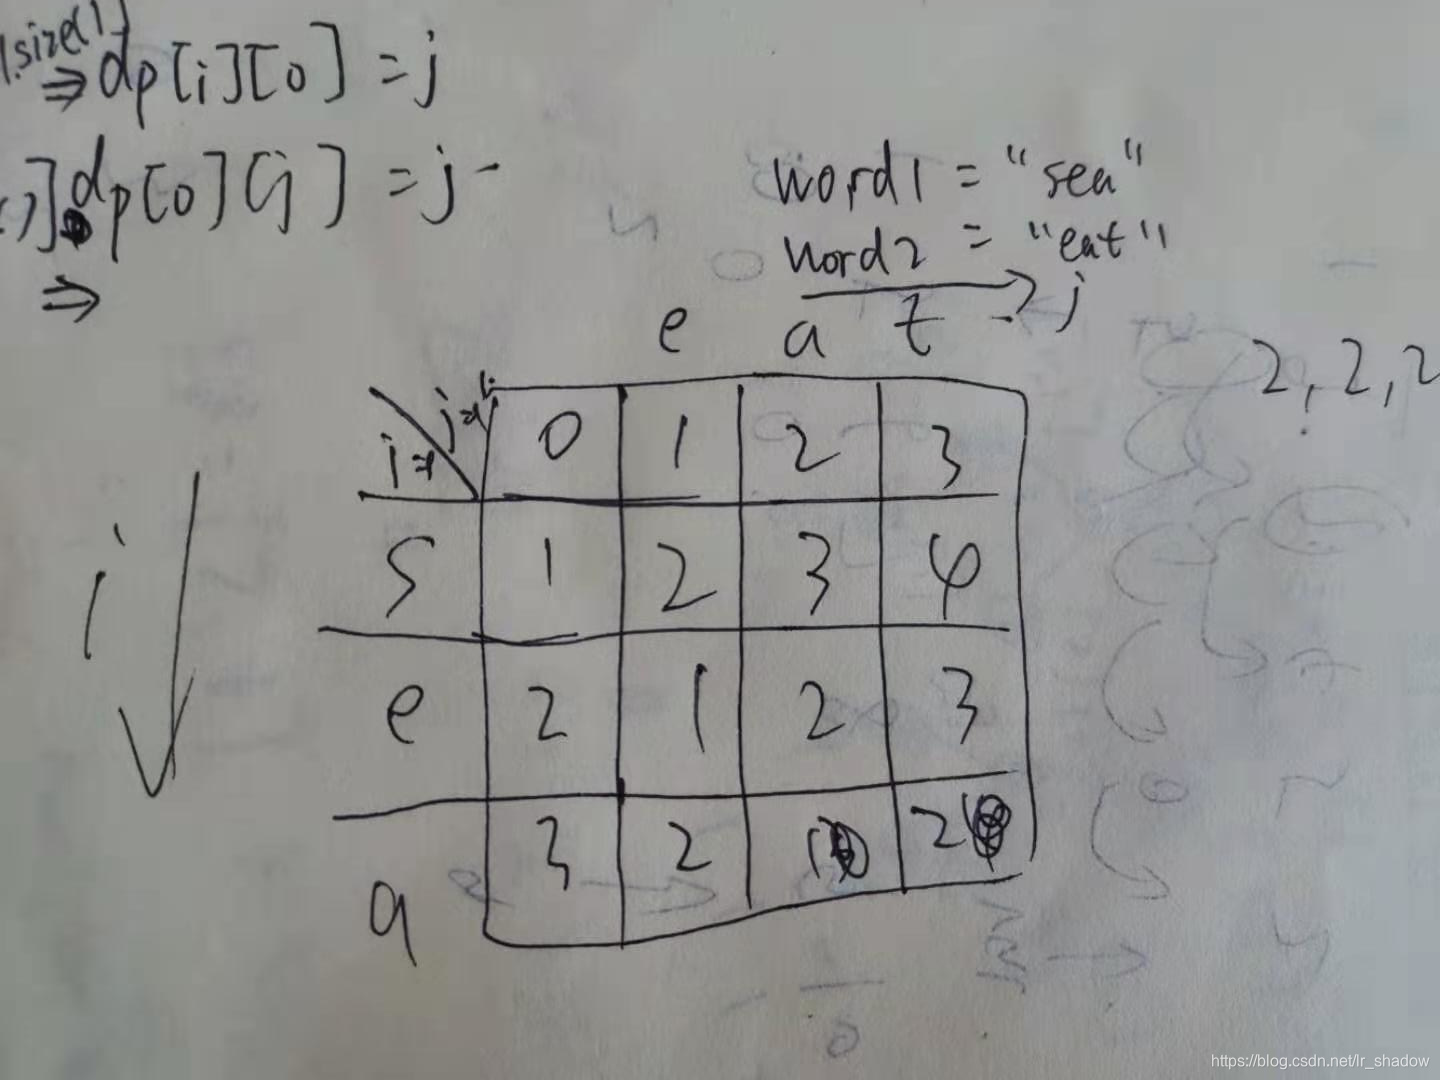 1.size()
⇒ dp[i][0] = j
j] dp[0][j] = j
⇒
word1 = "sea"
word2 = "eat"
j
e a t
2, 2, 2
i j
0 1 2 3
s 1 2 3 4
e 2 1 2 3
a 3 2 1 2
i
https://blog.csdn.net/lr_shadow